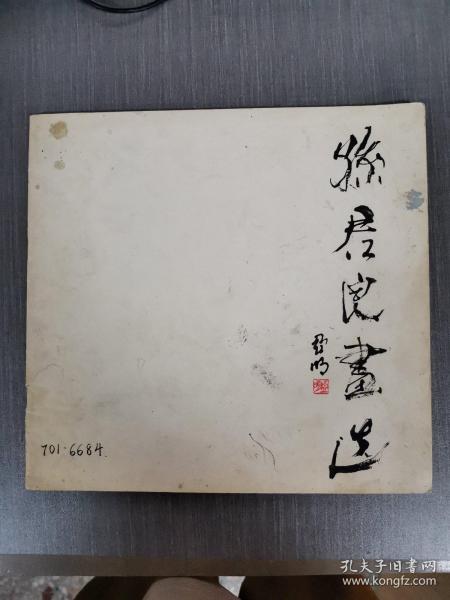 孫君良畫选
亚明
701·6684.
孔夫子旧书网
www.kongfz.com